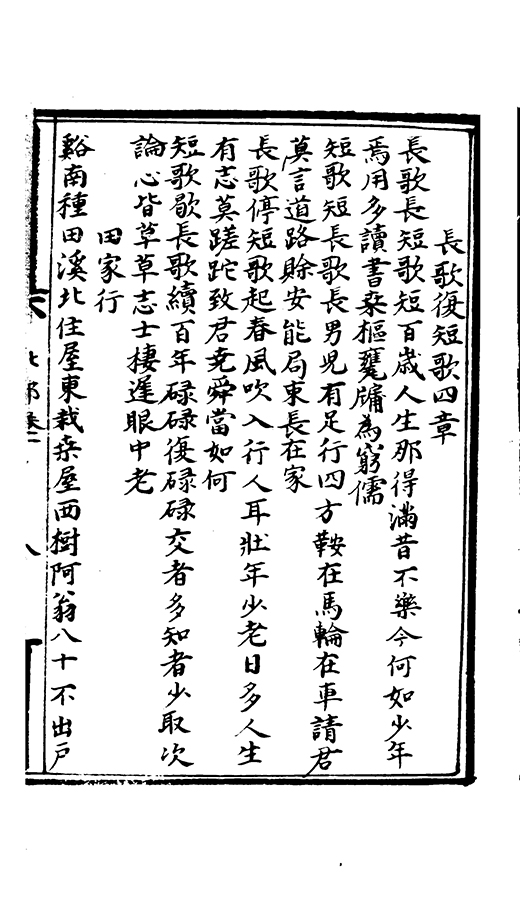 長歌復短歌四章
長歌長短歌短百歲人生那得滿昔不樂今何如少年
焉用多讀書桒樞甕牖為窮儒
短歌短長歌長男兒有足行四方鞍在馬輪在車請君
莫言道路賖安能局束長在家
長歌停短歌起春風吹入行人耳壯年少老日多人生
有志莫蹉跎致君堯舜當如何
短歌歇長歌續百年碌碌復碌碌交者多知者少取次
論心皆草草志士棲遲眼中老
田家行
谿南種田溪北住屋東栽桒屋西樹阿翁八十不出戶